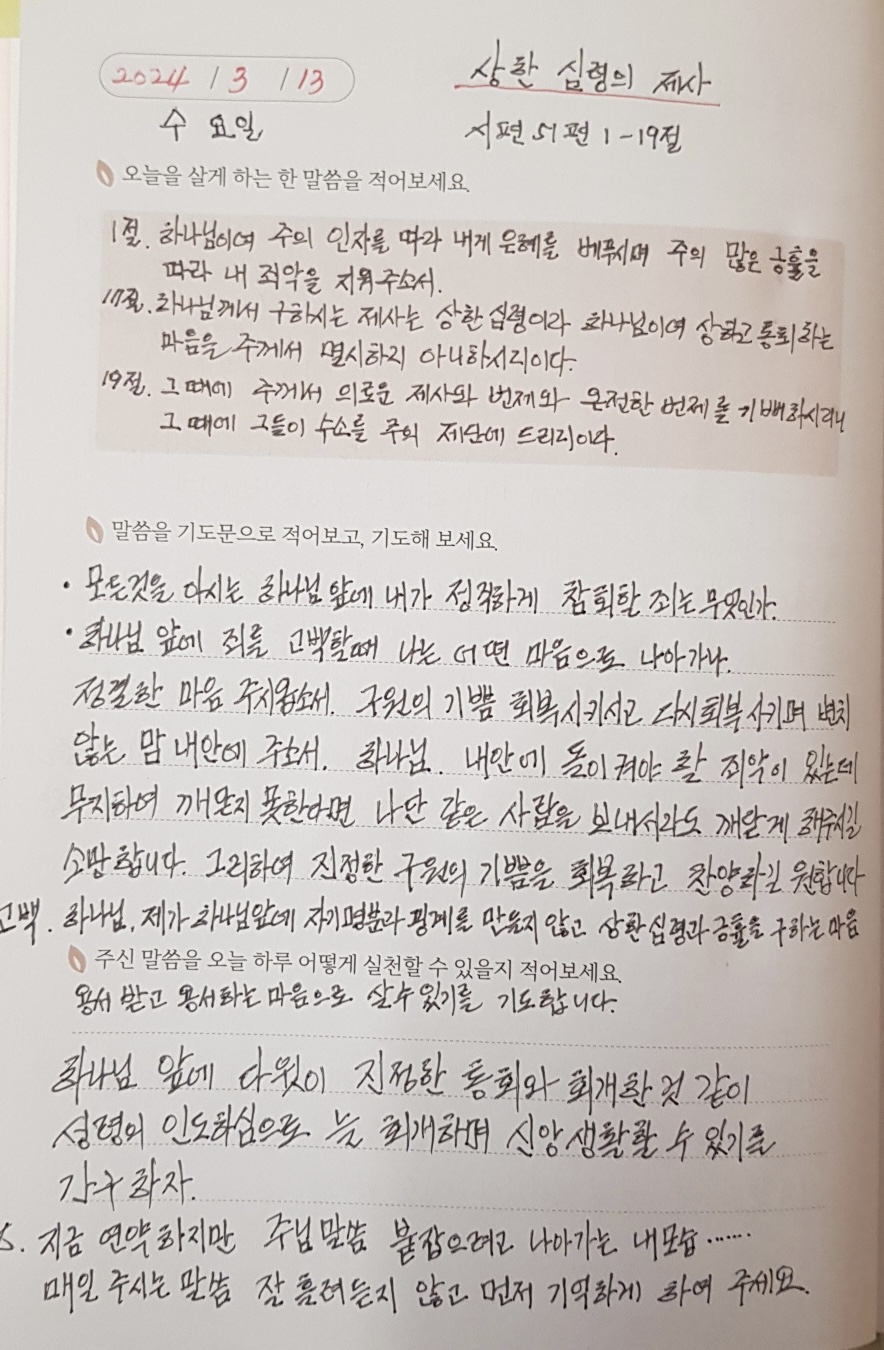 2024 / 3 / 13
상한 심령의 제사
수요일
시편 51편 1-19절
오늘을 살게 하는 한 말씀을 적어보세요.
1절. 하나님이여 주의 인자를 따라 내게 은혜를 베푸시며 주의 많은 긍휼을
따라 내 죄악을 지워주소서.
17절. 하나님께서 구하시는 제사는 상한 심령이라 하나님이여 상하고 통회하는
마음을 주께서 멸시하지 아니하시리이다.
19절. 그 때에 주께서 의로운 제사와 번제와 온전한 번제를 기뻐하시리니
그 때에 그들이 수소를 주의 제단에 드리리이다.
말씀을 기도문으로 적어보고, 기도해 보세요.
• 모든것을 아시는 하나님 앞에 내가 정직하게 참회할 죄는 무엇인가.
• 하나님 앞에 죄를 고백할때 나는 어떤 마음으로 나아가나.
정결한 마음 주시옵소서. 구원의 기쁨 회복시키시고 다시회복시키며 변치
않는 맘 내안에 주소서. 하나님. 내안에 돌이켜야 할 죄악이 있는데
무지하여 깨닫지 못한다면 나단 같은 사람을 보내서라도 깨닫게 해주시길
소망합니다. 그리하여 진정한 구원의 기쁨을 회복하고 찬양하길 원합니다
고백. 하나님, 제가 하나님앞에 자기명분과 핑계를 만들지 않고 상한심령과 긍휼을 구하는 마음
주신 말씀을 오늘 하루 어떻게 실천할 수 있을지 적어보세요.
용서 받고 용서하는 마음으로 살수있기를 기도합니다.
하나님 앞에 다윗이 진정한 통회와 회개한 것 같이
성령의 인도하심으로 늘 회개하며 신앙생활할 수 있기를
간구하자.
지금 연약하지만 주님말씀 붙잡으려고 나아가는 내모습......
매일 주시는 말씀 잘 흘려듣지 않고 먼저 기억하게 하여 주세요.